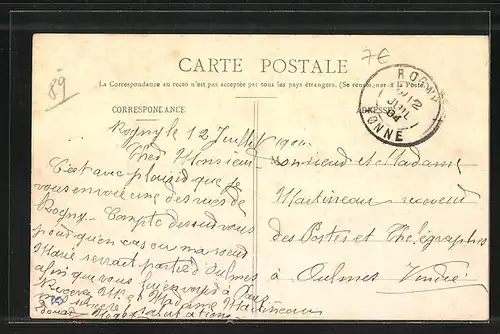 89
7€
CARTE POSTALE
La Correspondance au recto n'est pas acceptée par tous les pays étrangers. (Se renseigner à la Poste)
CORRESPONDANCE
ADRESSE
ROGNY
12
JUIL
04
YONNE
Rogny le 12 Juillet 1904
Cher Monsieur
C'est avec plaisir que je
vous envoie une des vues de
Rogny. Compte dessus vous
pour qu'en cas ou ma soeur
Marie serrait partie d'Oulmes
afin que vous
Recevez Mr. et Madame Martineau
Monsieur et Madame
Martineau receveur
des Postes et Télégraphes
à Oulmes Vendée